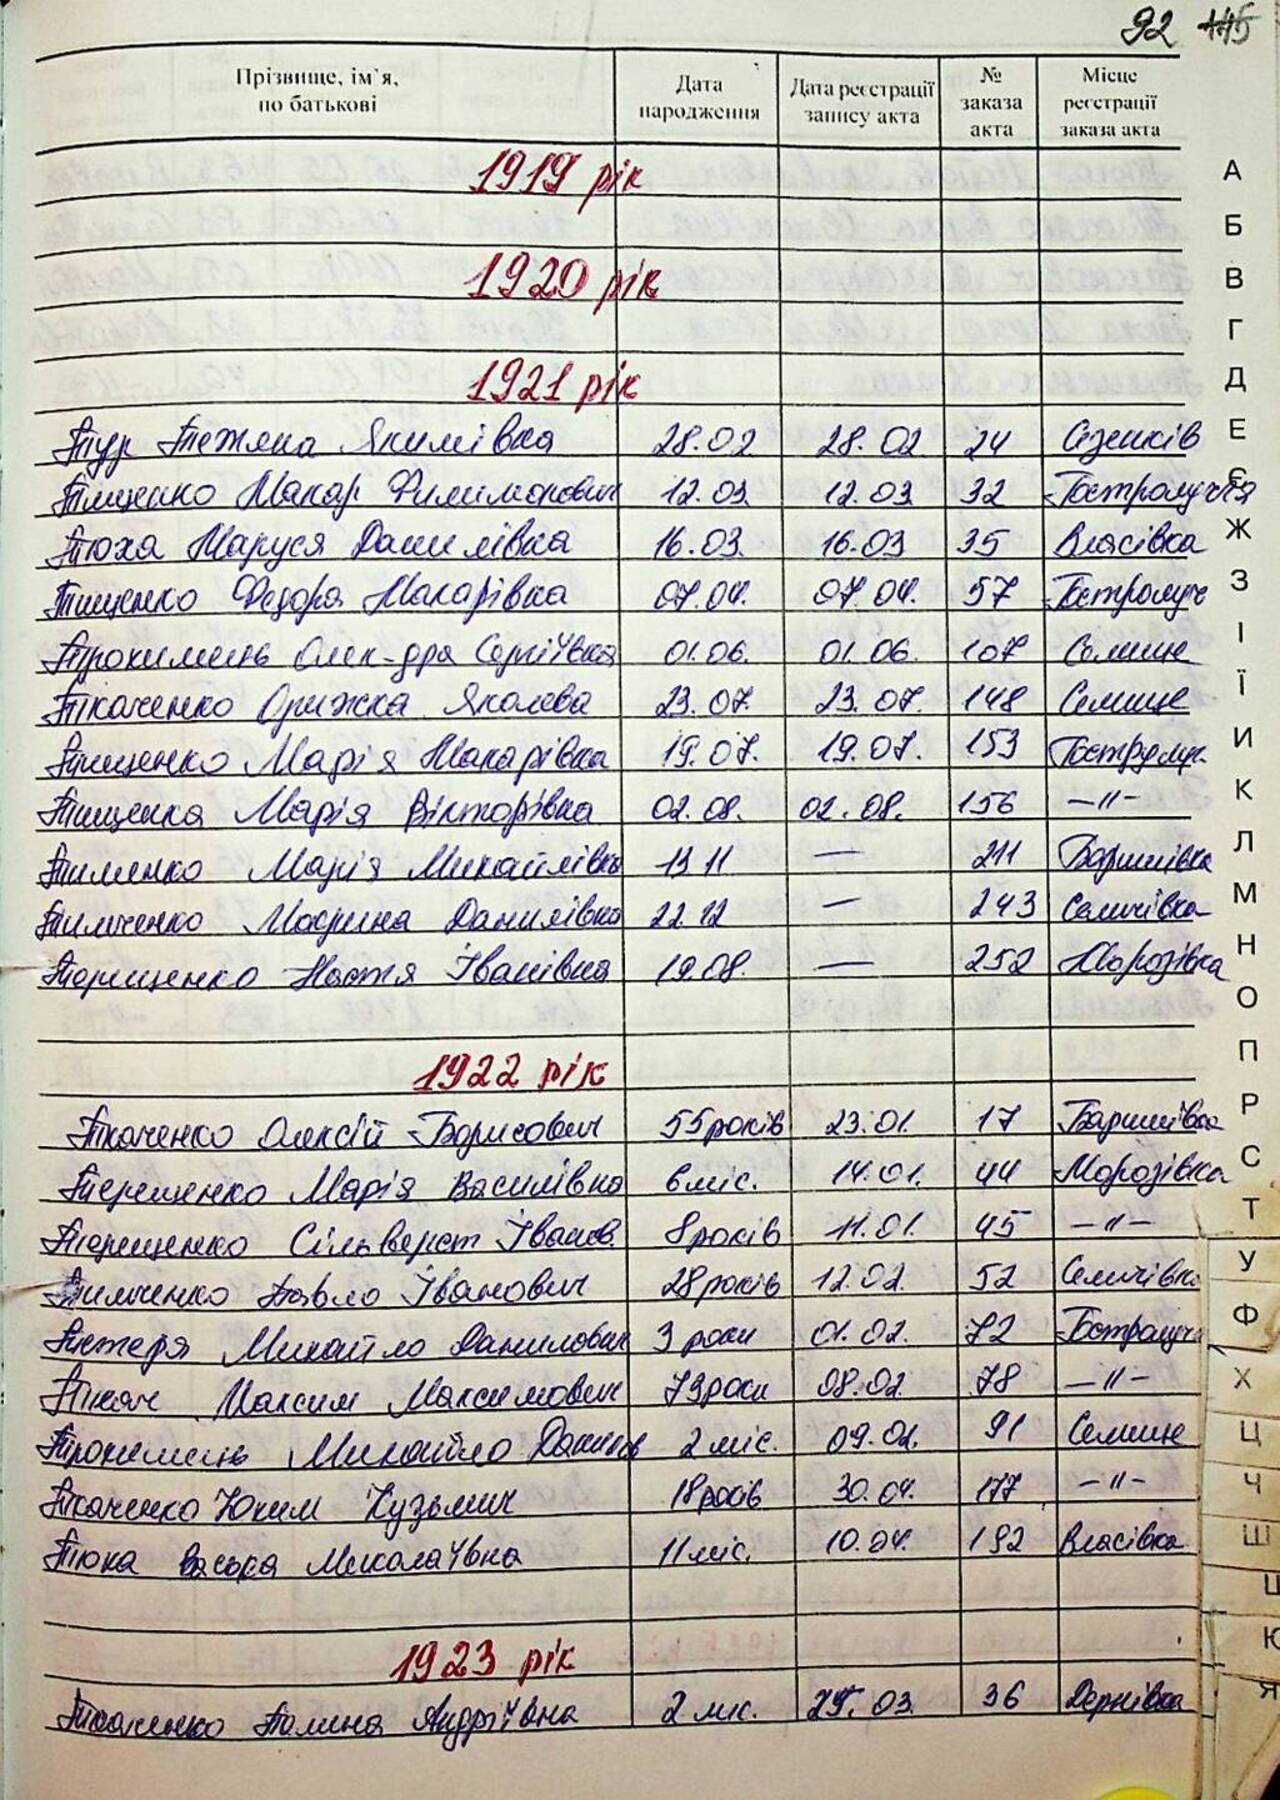 92 115
Прізвище, ім`я, по батькові Дата народження Дата реєстрації запису акта № заказа акта Місце реєстрації заказа акта
1919 рік
1920 рік
1921 рік
Тур Якимівна 28.02 28.02 24 Сезенків
Тищенко Макар Филимонович 12.03 12.03 32 Гостролуччя
Тюха Маруся Данилівна 16.03. 16.03 35 Власівка
Тищенко Федора Макарівна 07.04. 07.04. 57 Гостролуч
Трокимець Олек-дра Сергіївна 01.06. 01.06. 107 Селище
Ткаченко Оришка Яковева 23.07. 23.07. 148 Селище
Тищенко Марія Макарівна 19.07. 19.07. 153 Гостролуч.
Тищенка Марія Вікторівна 02.08. 02.08. 156 —"—
Тименко Марія Михайлівна 13 11 — 211 Баришівка
Тимченко Мокрина Данилівна 22.12 — 243 Селичівка
Терещенко Настя Іванівна 19.08. — 252 Морозівка
1922 рік
Ткаченко Олексій Борисович 55 років 23.01. 17 Баришівка
Терещенко Марія Василівна 6 міс. 14.01. 44 Морозівка
Терещенко Сільверст Іванов. 8 років 11.01. 45 —"—
Тимченко Павло Іванович 28 років 12.02. 52 Селичівка
Михайло Данилович 3 роки 01.02. 72 Гостролуч
Ткач Максим Максимович 73 роки 08.02. 78 —"—
Трокимець Михайло Данилов 2 міс. 09.02. 91 Селище
Ткаченко Юхим Кузьмич 18 років 30.04. 177 —"—
Тюха Васька Миколаївна 11 міс. 10.04. 192 Власівка
1923 рік
Галина Андріївна 2 міс. 03. 36 Дернівка
А
Б
В
Г
Д
Е
Є
Ж
З
І
Ї
И
К
Л
М
Н
О
П
Р
С
Т
У
Ф
Х
Ц
Ч
Ш
Щ
Ю
Я